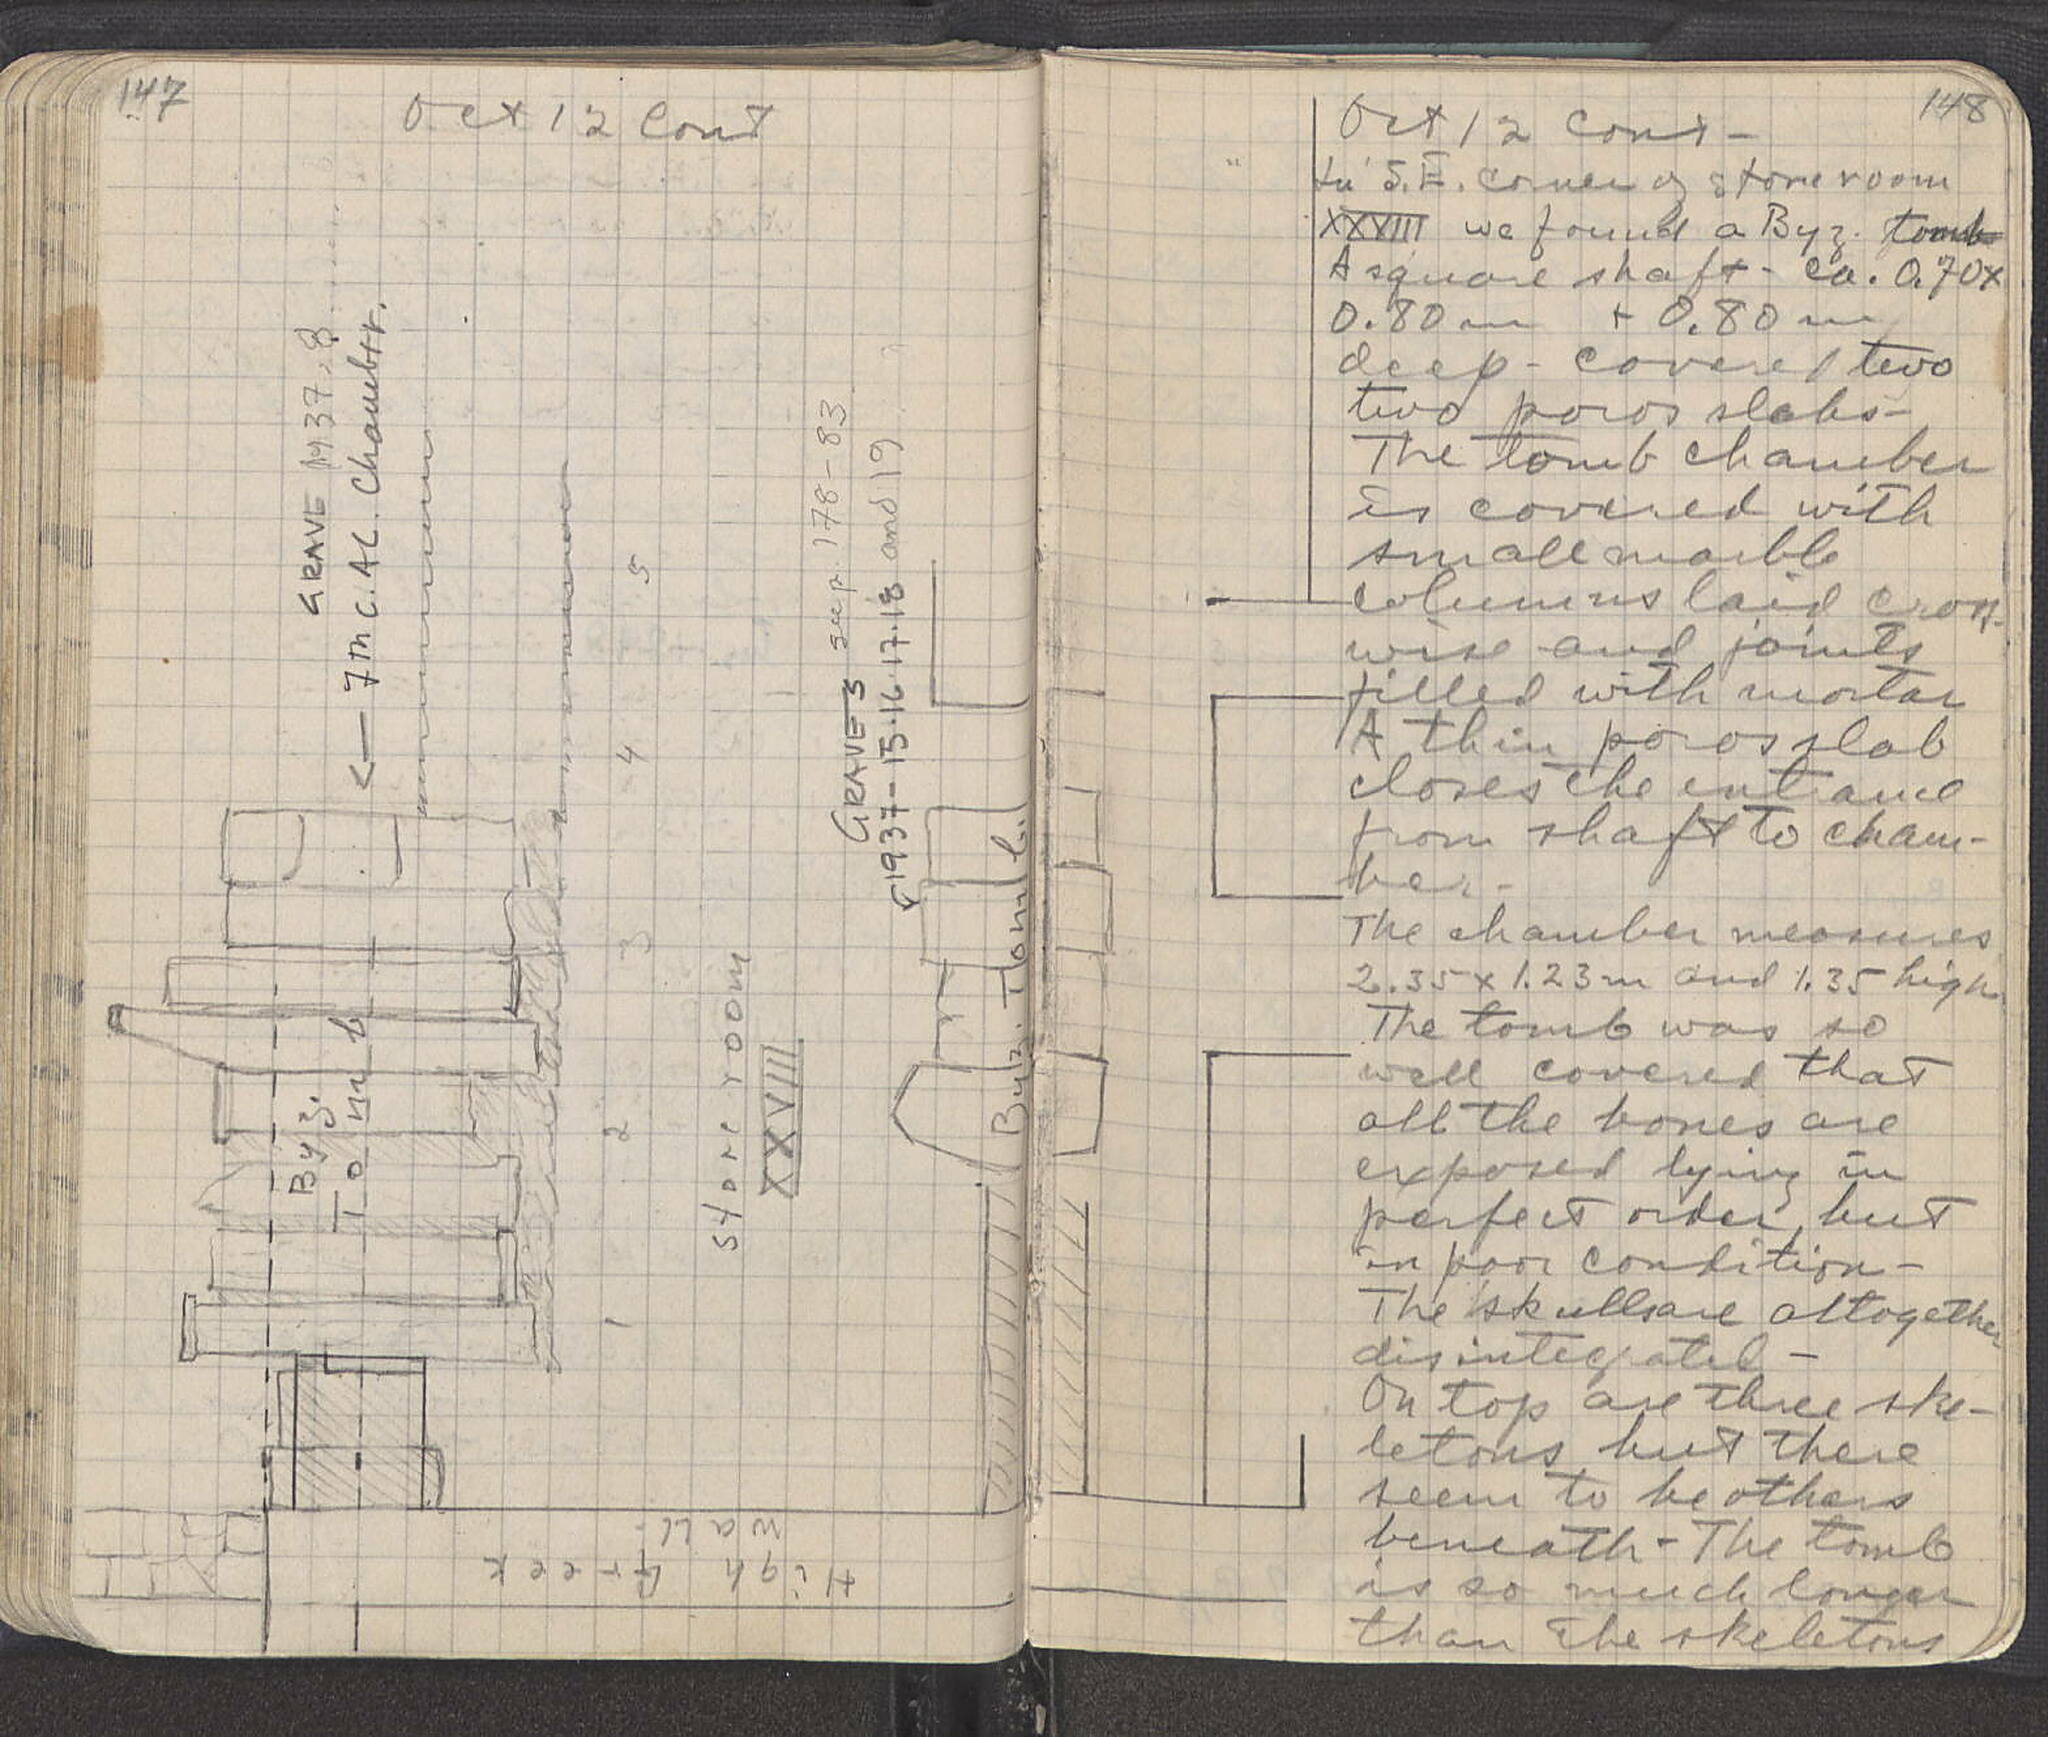 147
Oct 12 Cont
GRAVE 1937.8
← 7th C. AC. Chambtr.
Byz.
Tomb
1 2 3 4 5
store room
XXVIII
GRAVES see p. 178-83
1937-15.16.17.18 and 19
Byz. Tomb.
High Greek
wall.
148
Oct 12 Cont-
In S.E. corner of store room
XXVIII we found a Byz. tomb
A square shaft - ca. 0.70x
0.80m + 0.80m
deep - covered two
two poros slabs-
The tomb chamber
is covered with
small marble
columns laid cross-
wise and joints
filled with mortar
A thin poros slab
closes the entrance
from shaft to cham-
ber-
The chamber measures
2.35 x 1.23m and 1.35 high.
The tomb was so
well covered that
all the bones are
exposed lying in
perfect order, but
in poor condition-
The skulls are altogether
disintegrated-
On top are three ske-
letons, but there
seem to be others
beneath- The tomb
is so much longer
than the skeletons